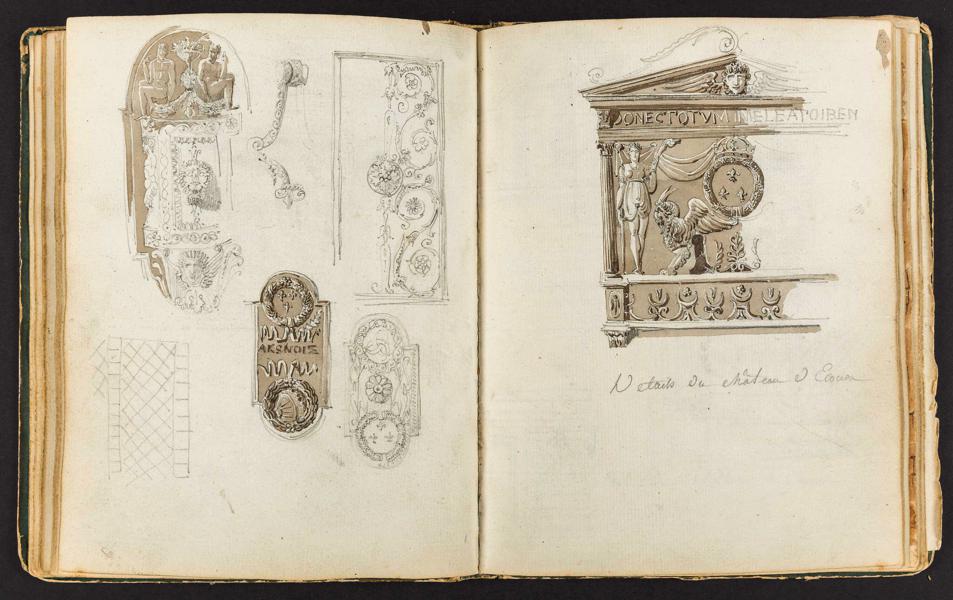 AKSNOIE
DONECTOTVM IMPLEATORBEN
Détails du château d'Ecouen